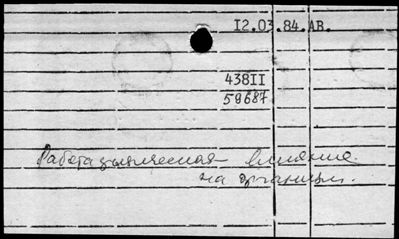 I2.03.84.АВ.
438II
59687
Работа влияние
на организм.